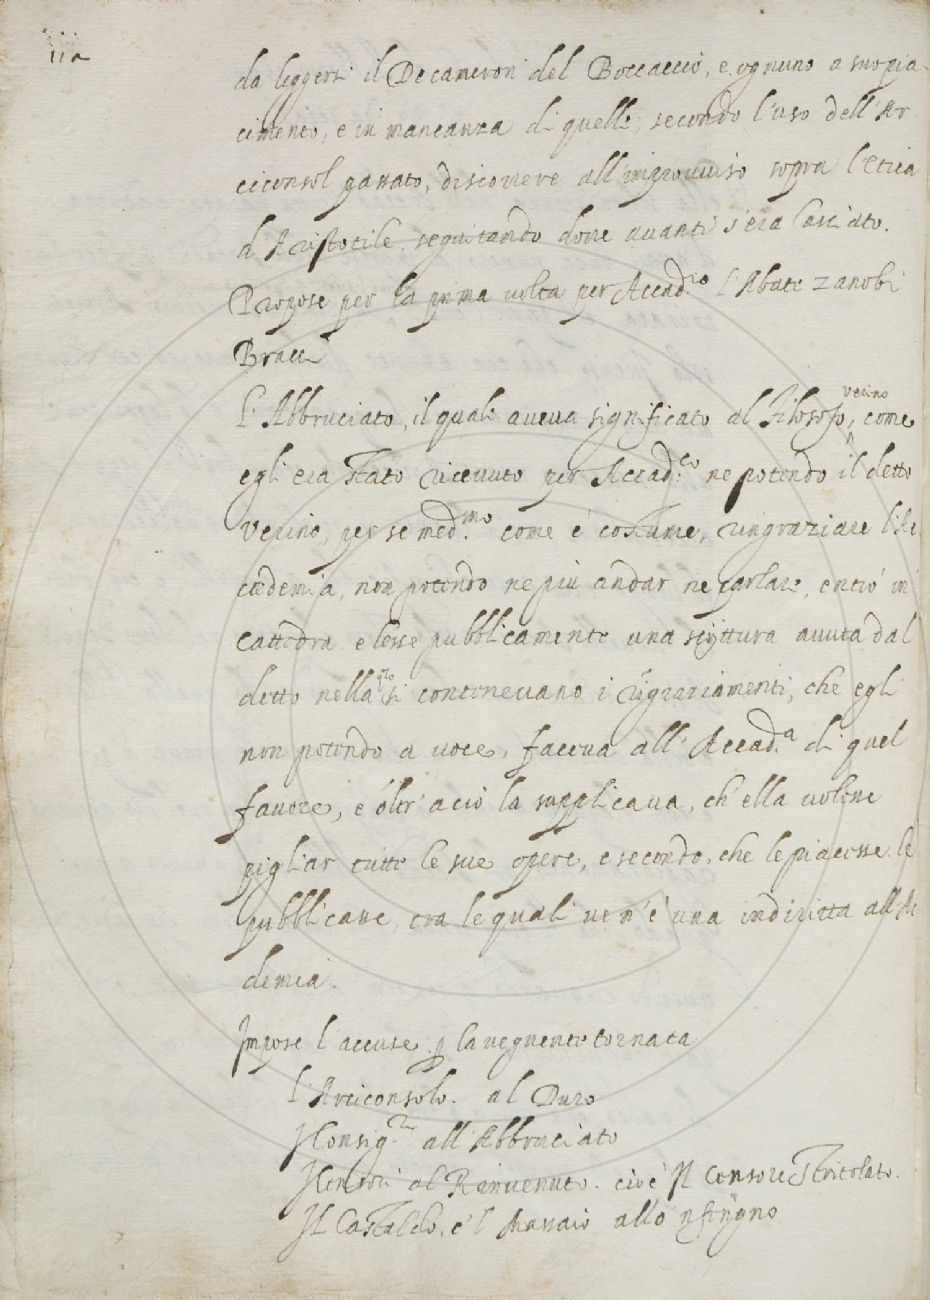 112
da leggersi il Decameron del Boccaccio, e ognuno a suo pia-
cimento, e in mancanza di quelli, secondo l'uso dell'Ar
ciconsol passato, discorrere all'improuuiso sopra l'Etica
d'Aristotile, seguitando doue auanti s'era lasciato.
Propose per la prima uolta per Accad.co l'Abate Zanobi
Bracci
L'Abbruciato, il quale aueua significato al Filosofo, uerino come
egli era stato riceuuto per Accad.co ne potendo il detto
Verino, per se med.mo come è costume, ringraziare l'Ac
cademia, non potendo ne più andar ne parlare, entrò in
cattedra e lesse pubblicamente una scrittura auuta dal
detto nella qle si conteneuano i ringraziamenti, che egli
non potendo a uoce, faceua all'Accad.a di quel
fauore, e oltr'a ciò la supplicaua, ch'ella uolesse
pigliar tutte le sue opere, e secondo, che le piacesse le
pubblicare, tra le quali ue n'è una indiritta all'Ac
demia.
Impose l'accuse p la uegnente tornata
L'Arciconsolo. al Duro
Il Consig.re all'Abbruciato
Il Censori al Rinuenuto. cioè Il Censore Stritolato.
Il Castaldo, e'l Massaio allo 'nferigno